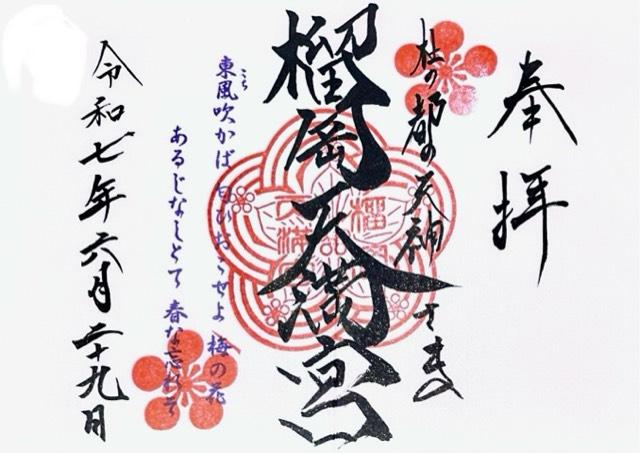 奉拝
杜の都の天神さまへ
榴岡天満宮
東風吹かば 匂ひおこせよ 梅の花
こち
あるじなしとて 春な忘れそ
令和七年六月二十九日